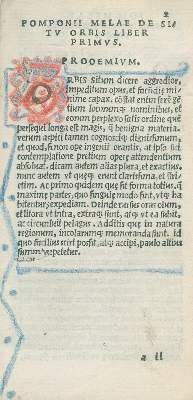 2
POMPONII MELAE DE SI
TV ORBIS LIBER
PRIMVS.
PROOEMIVM.
ORBIS situm dicere aggredior,
impeditum opus, et facundiæ mi
nime capax. cōstat enim ferè gē
tium locorumq; nominibus, et
eorum perplexo satis ordine que
persequi longa est magis, q̄ benigna materia.
verum aspici tamen cognosciq; dignissimum,
et quod, si non ope ingenii orantis, at ipsa sui
contemplatione pretium opere attendentium
absoluat. dicam autem alias plura, et exactius.
nunc autem vt quæq; erunt clarissima, et stri
ctim. Ac primo quidem quæ sit forma totius, q̄
maximæ partes, quo singulæ modo sint, vtq; ha
bitentur, expediam. Deinde rursus oras omnium,
et litora vt intra, extraq; sunt, atq; vt ea subit,
ac circumluit pelagus. Additis quæ in natura
regionum, incolarumq; memoranda sunt. Id
quo facilius sciri possit, atq; accipi, paulo altius
summa repetetur.
a ii